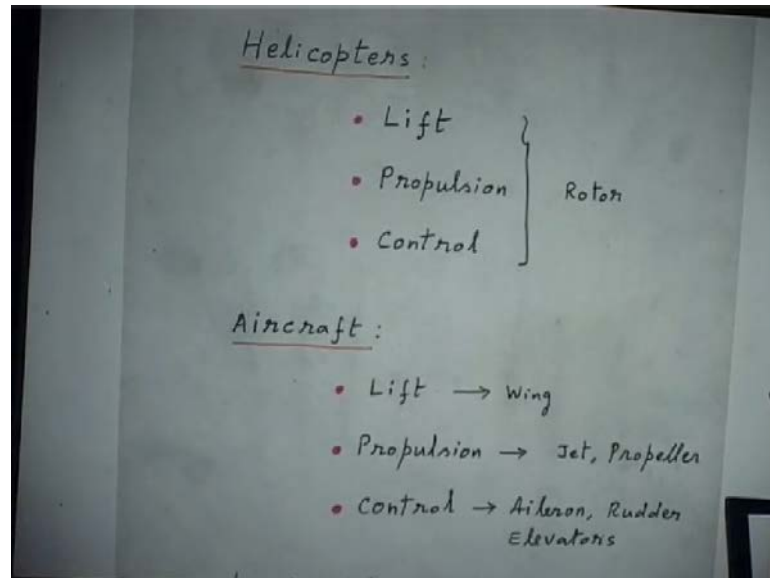 Helicopters :
• Lift
• Propulsion
• Control
Rotor
Aircraft :
• Lift → Wing
• Propulsion → Jet, Propeller
• Control → Aileron, Rudder
Elevators